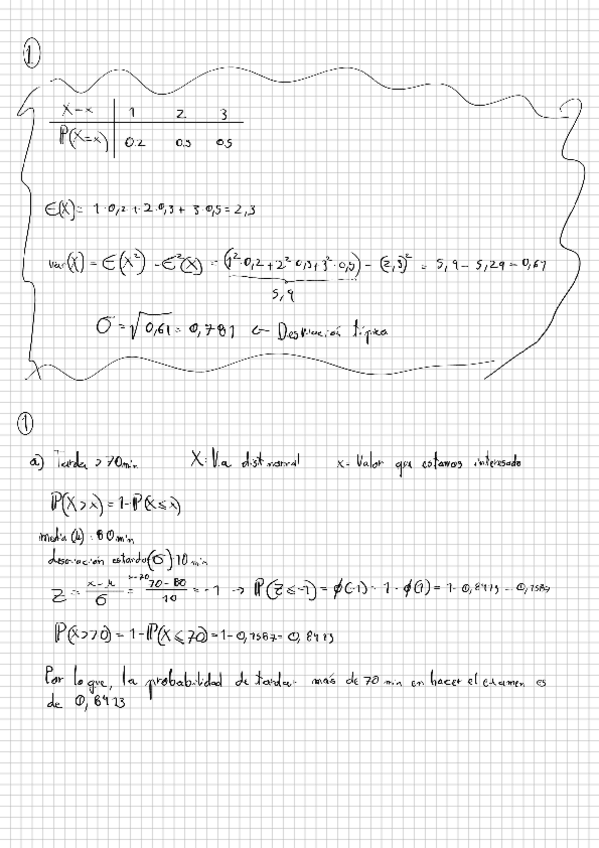 1
X-x 1 2 3
P(X=x) 0.2 0.3 0.5
E(X) = 1·0,2 + 2·0,3 + 3·0,5 = 2,3
var(X) = E(X²) - E²(X) = (1²·0,2 + 2²·0,3 + 3²·0,5) - (2,3)² = 5,9 - 5,29 = 0,61
5,9
σ = √0,61 = 0,781 ← Desviación típica
1
a) Tarda > 70 min X: V.a dist normal x - Valor que estamos interesado
P(X > x) = 1 - P(X ≤ x)
media (μ): 80 min
desviación estandar (σ): 10 min
Z = (x - μ)/σ = x=70 (70 - 80)/10 = -1 → P(Z ≤ -1) = ϕ(-1) = 1 - ϕ(1) = 1 - 0,8413 = 0,1587
P(X > 70) = 1 - P(X ≤ 70) = 1 - 0,1587 = 0,8413
Por lo que, la probabilidad de tardar más de 70 min en hacer el examen es
de 0,8413